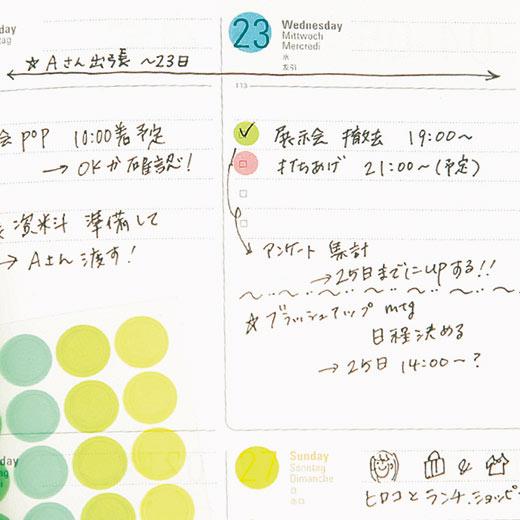 ☆ Aさん出張 〜23日
会 pop 10:00着予定
→ OKか確認!
資料 準備して
→ Aさん渡す!
23
Wednesday
Mittwoch
Mercredi
水
友引
113
展示会 撤去 19:00〜
打ちあげ 21:00〜(予定)
アンケート 集計
→25日までにupする!!
☆ブラッシュアップ mtg
日程決める
→25日 14:00〜?
27
Sunday
Sonntag
Dimanche
日
&
ヒロコとランチ、ショッピ